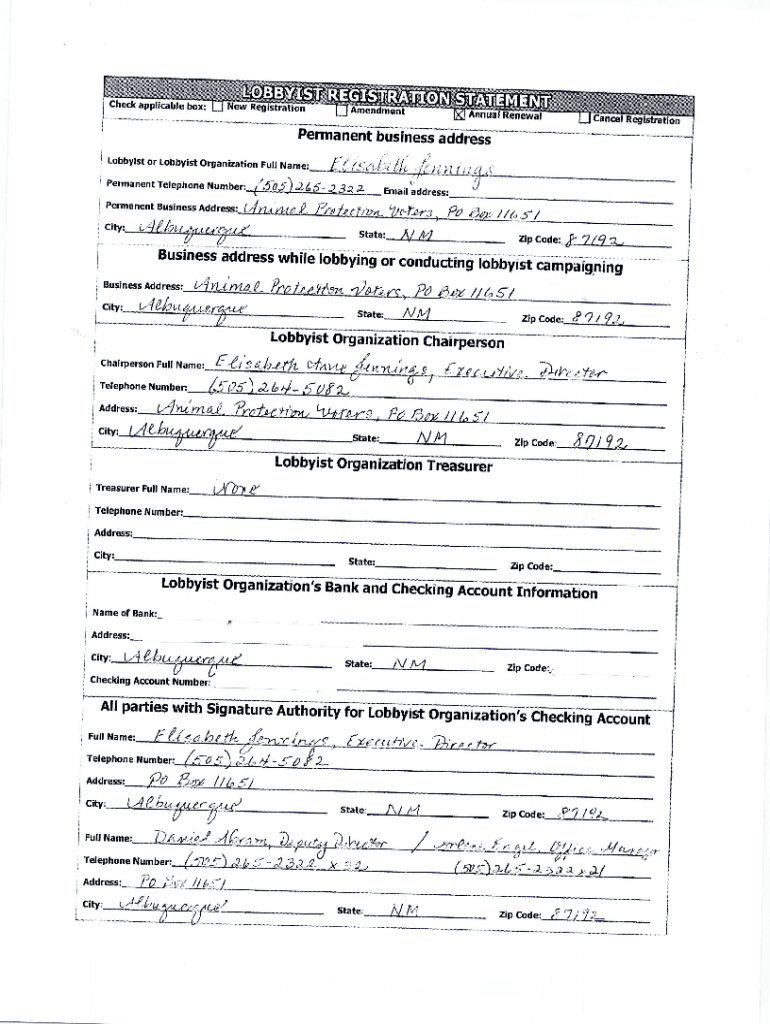 LOBBYIST REGISTRATION STATEMENT
Check applicable box: ☐ New Registration ☐ Amendment ☒ Annual Renewal ☐ Cancel Registration
Permanent business address
Lobbyist or Lobbyist Organization Full Name: Elisabeth Jennings
Permanent Telephone Number: (505) 265-2322 Email address:
Permanent Business Address: Animal Protection Voters, PO Box 11651
City: Albuquerque State: NM Zip Code: 87192
Business address while lobbying or conducting lobbyist campaigning
Business Address: Animal Protection Voters, PO Box 11651
City: Albuquerque State: NM Zip Code: 87192
Lobbyist Organization Chairperson
Chairperson Full Name: Elisabeth Anne Jennings, Executive Director
Telephone Number: (505) 264-5082
Address: Animal Protection Voters, PO Box 11651
City: Albuquerque State: NM Zip Code: 87192
Lobbyist Organization Treasurer
Treasurer Full Name: None
Telephone Number:
Address:
City: State: Zip Code:
Lobbyist Organization's Bank and Checking Account Information
Name of Bank:
Address:
City: Albuquerque State: NM Zip Code:
Checking Account Number:
All parties with Signature Authority for Lobbyist Organization's Checking Account
Full Name: Elisabeth Jennings, Executive Director
Telephone Number: (505) 264-5082
Address: PO Box 11651
City: Albuquerque State: NM Zip Code: 87192
Full Name: Daniel Abram, Deputy Director / Engel Office Manager
Telephone Number: (505) 265-2322 x 32 (505) 265-2322 x21
Address: PO Box 11651
City: Albuquerque State: NM Zip Code: 87192